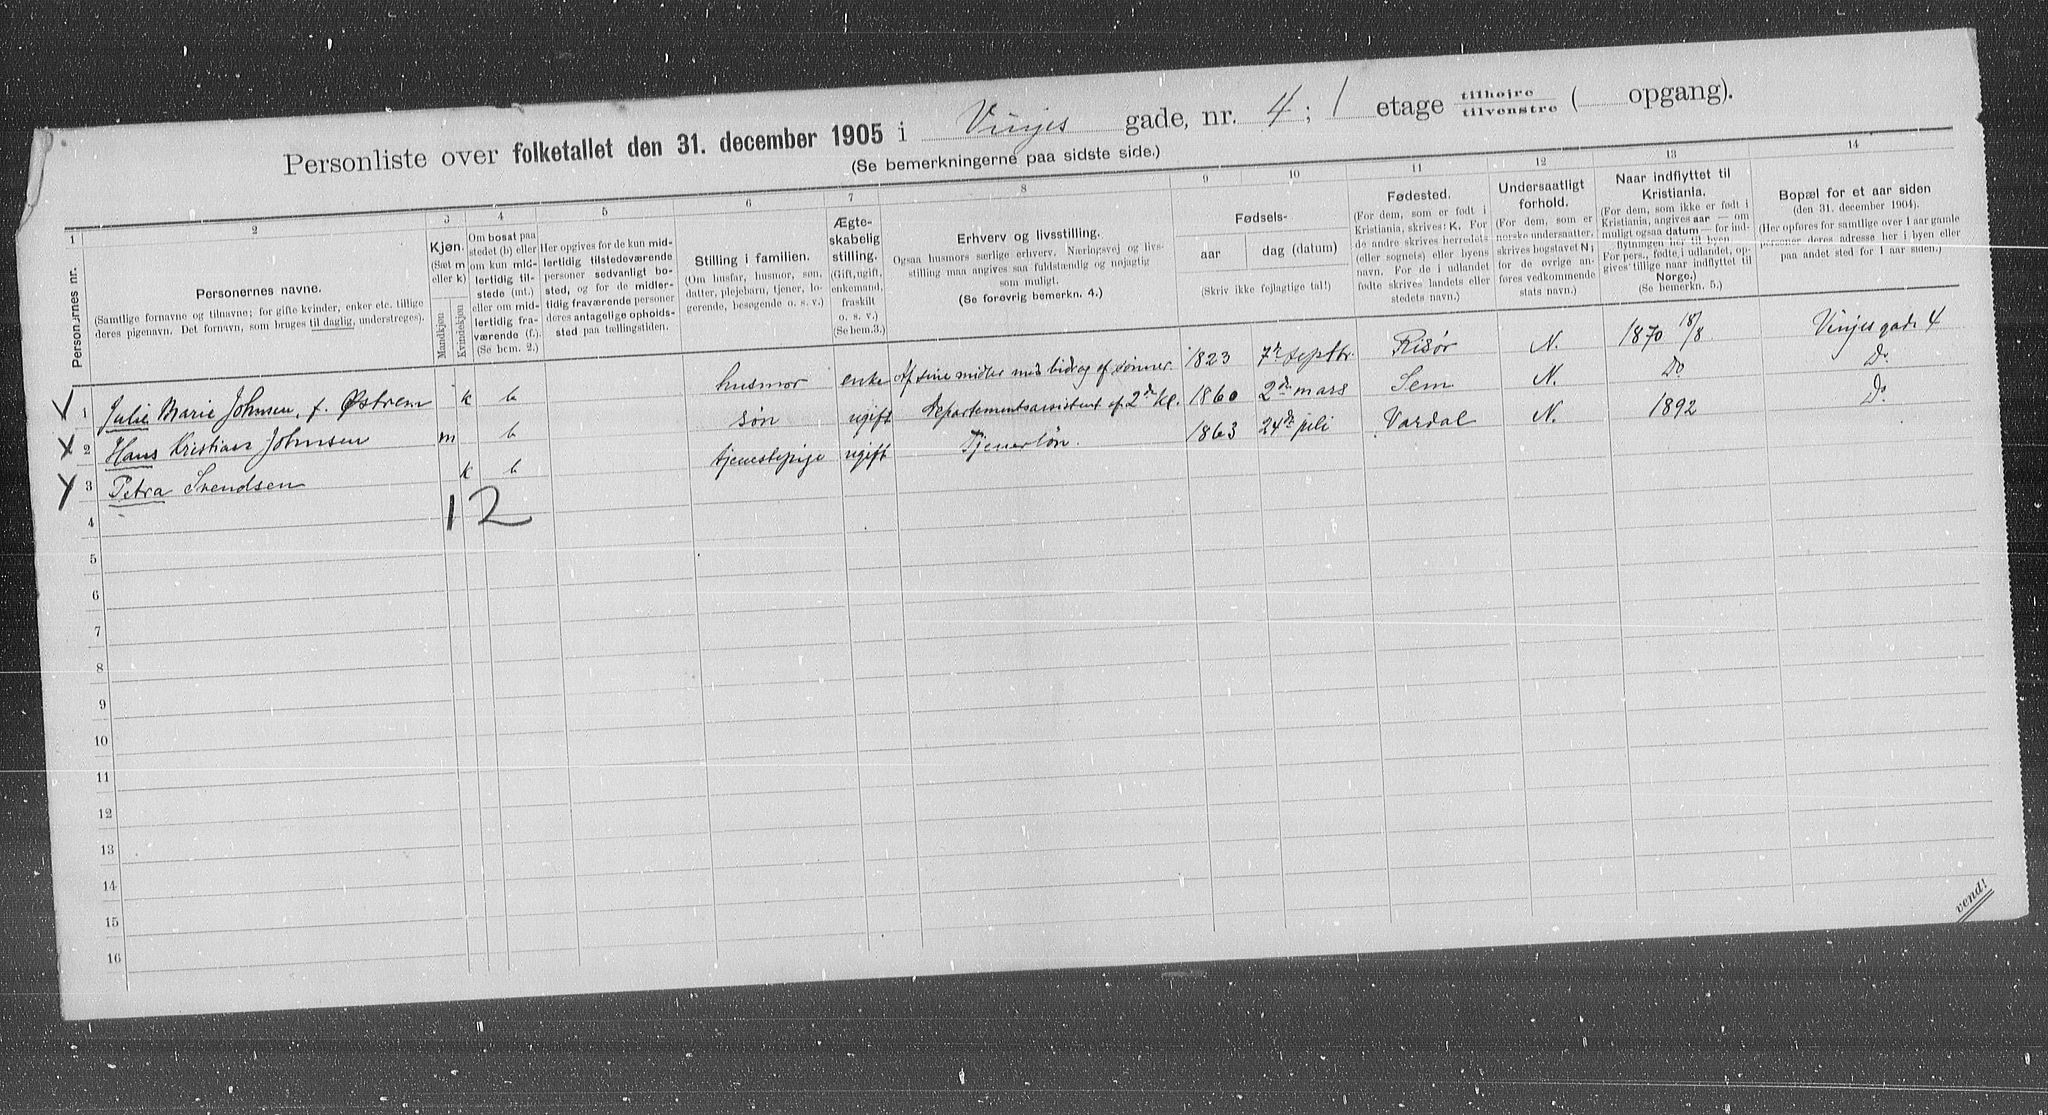 Personliste over folketallet den 31. december 1905 i Vinjes gade, nr. 4; 1 etage tilhøire tilvenstre ( opgang).
(Se bemerkningerne paa sidste side.)
1 2 3 4 5 6 7 8 9 10 11 12 13 14
Personernes nr.
Personernes navne.
(Samtlige fornavne og tilnavne; for gifte kvinder, enker etc. tillige
deres pigenavn. Det fornavn, som bruges til daglig, understreges).
Kjøn.
(Sæt m
eller k)
Mandkjøn
Kvindekjøn
Om bosat paa
stedet (b) eller
om kun mid-
lertidig til-
stede (mt.)
eller om mid-
lertidig fra-
værende (f.).
(Se bem. 2.)
Her opgives for de kun mid-
lertidig tilstedeværende
personer sedvanligt bo-
sted, og for de midler-
tidig fraværende personer
deres antagelige opholds-
sted paa tællingstiden.
Stilling i familien.
(Om husfar, husmor, søn,
datter, plejebarn, tjener, lo-
gerende, besøgende o. s. v.)
Ægte-
skabelig
stilling.
(Gift, ugift,
enkemand,
fraskilt
o. s. v.)
(Se bem. 3.)
Erhverv og livsstilling.
Ogsaa husmors særlige erhverv. Næringsvej og livs-
stilling maa angives saa fuldstændig og nøjagtig
som muligt.
(Se forøvrig bemerkn. 4.)
Fødsels-
aar dag (datum)
(Skriv ikke fejlagtige tal!)
Fødested.
(For dem, som er født i
Kristiania, skrives: K. For
de andre skrives herredets
(eller sognets) eller byens
navn. For de i udlandet
fødte skrives landets eller
stedets navn.)
Undersaatligt
forhold.
(For dem, som er
norske undersaatter,
skrives bogstavet N;
for de øvrige an-
føres vedkommende
stats navn.)
Naar indflyttet til
Kristiania.
(For dem, som ikke er født i
Kristiania, angives aar — om
muligt ogsaa datum — for ind-
flytningen her til byen.
For pers., fødte i udlandet, op-
gives tillige naar indflyttet til
Norge.)
(Se bemerkn. 5.)
Bopæl for et aar siden
(den 31. december 1904).
(Her opføres for samtlige over 1 aar gamle
personer deres adresse her i byen eller
paa andet sted for 1 aar siden.)
1 Julie Marie Johnsen, f. Østrem k b husmor enke Af sine midler med bidrag af sønner. 1823 7de septbr. Risør N. 1870 18/8. Vinjes gade 4
2 Hans Kristian Johnsen m b søn ugift Departementsassistent af 2den kl. 1860 2den mars Sem N. Do Do.
3 Petra Svendsen k b tjenestepige ugift Tjenerløn. 1863 24de juli Vardal N. 1892 Do.
4 1 2
5
6
7
8
9
10
11
12
13
14
15
16
vend!